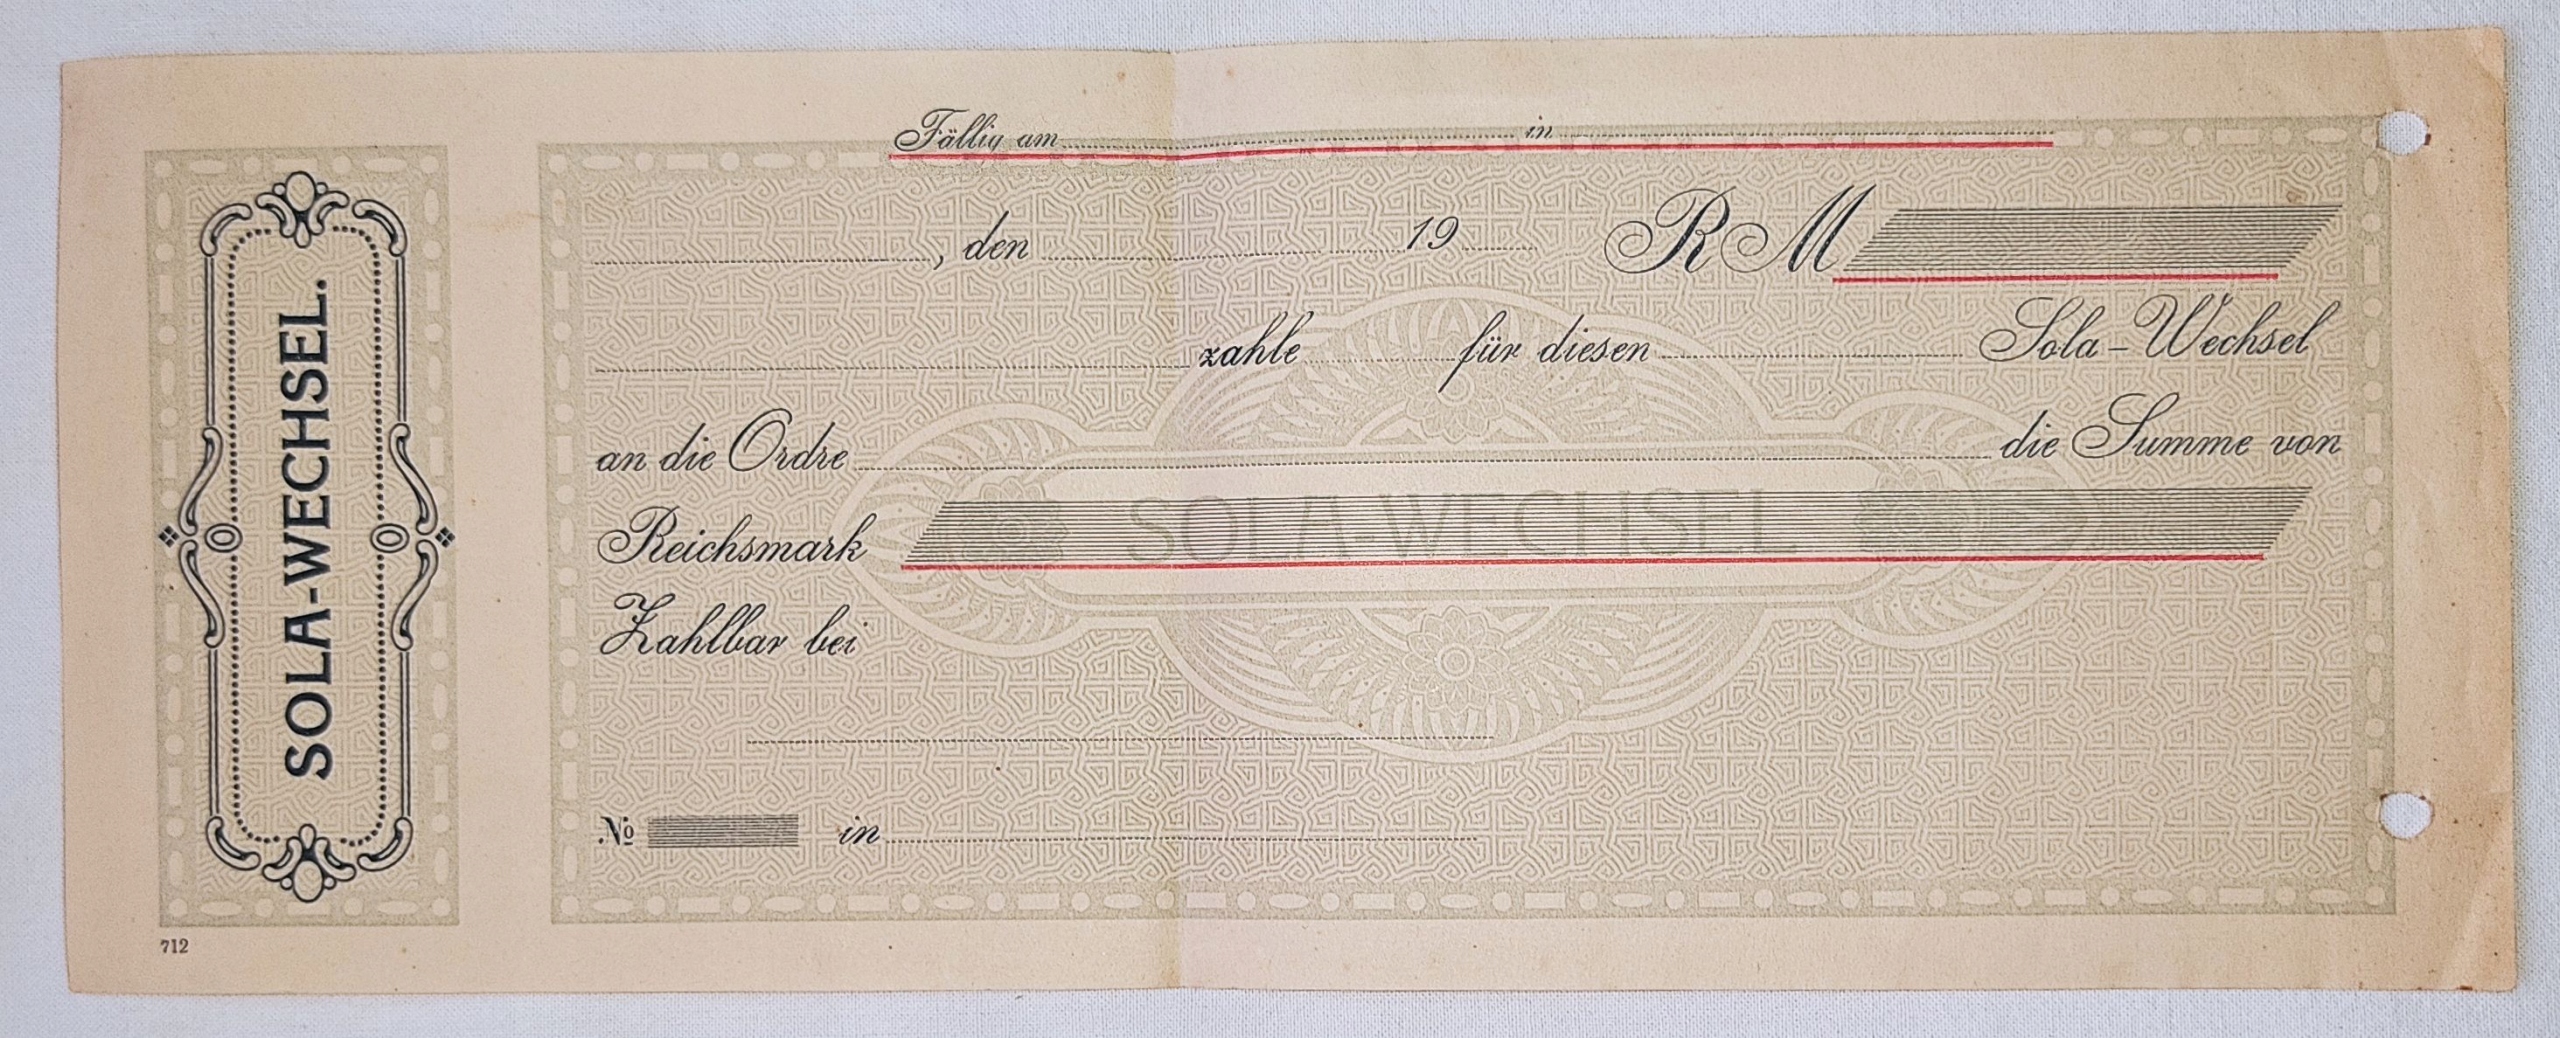 SOLA-WECHSEL.
Fällig am in
, den 19 RM
zahle für diesen Sola-Wechsel
an die Ordre die Summe von
Reichsmark SOLA-WECHSEL
Zahlbar bei
No in
712